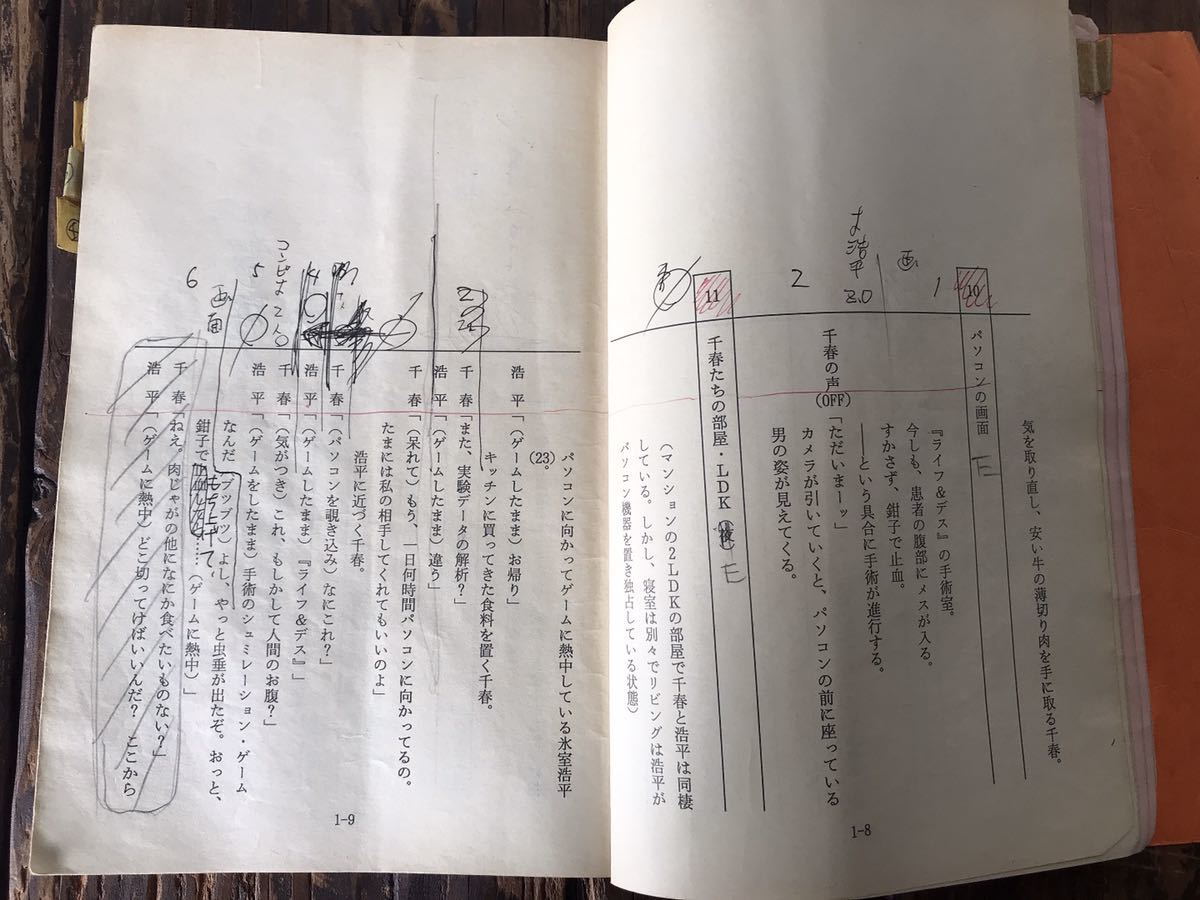 気を取り直し、安い牛の薄切り肉を手に取る千春。
10 パソコンの画面 E
『ライフ&デス』の手術室。
今しも、患者の腹部にメスが入る。
すかさず、鉗子で止血。
――という具合に手術が進行する。
千春の声(OFF)「ただいまーッ」
カメラが引いていくと、パソコンの前に座っている
男の姿が見えてくる。
11 千春たちの部屋・LDK(夜) E
(マンションの2LDKの部屋で千春と浩平は同棲
している。しかし、寝室は別々でリビングは浩平が
パソコン機器を置き独占している状態)
1
画
浩平
2
1-8
パソコンに向かってゲームに熱中している氷室浩平
(23)。
浩平「(ゲームしたまま)お帰り」
キッチンに買ってきた食料を置く千春。
千春「また、実験データの解析?」
浩平「(ゲームしたまま)違う」
千春「(呆れて)もう、一日何時間パソコンに向かってるの。
たまには私の相手してくれてもいいのよ」
浩平に近づく千春。
千春「(パソコンを覗き込み)なにこれ?」
浩平「(ゲームしたまま)『ライフ&デス』」
千春「(気がつき)これ、もしかして人間のお腹?」
浩平「(ゲームをしたまま)手術のシュミレーション・ゲーム
なんだ(ブツブツ)よし、やっと虫垂が出たぞ。おっと、
鉗子で
もち上げて、
……(ゲームに熱中)」
千春「ねえ。肉じゃがの他になにか食べたいものない?」
浩平「(ゲームに熱中)どこ切ってけばいいんだ? ここから
4
5
画面
6
1-9